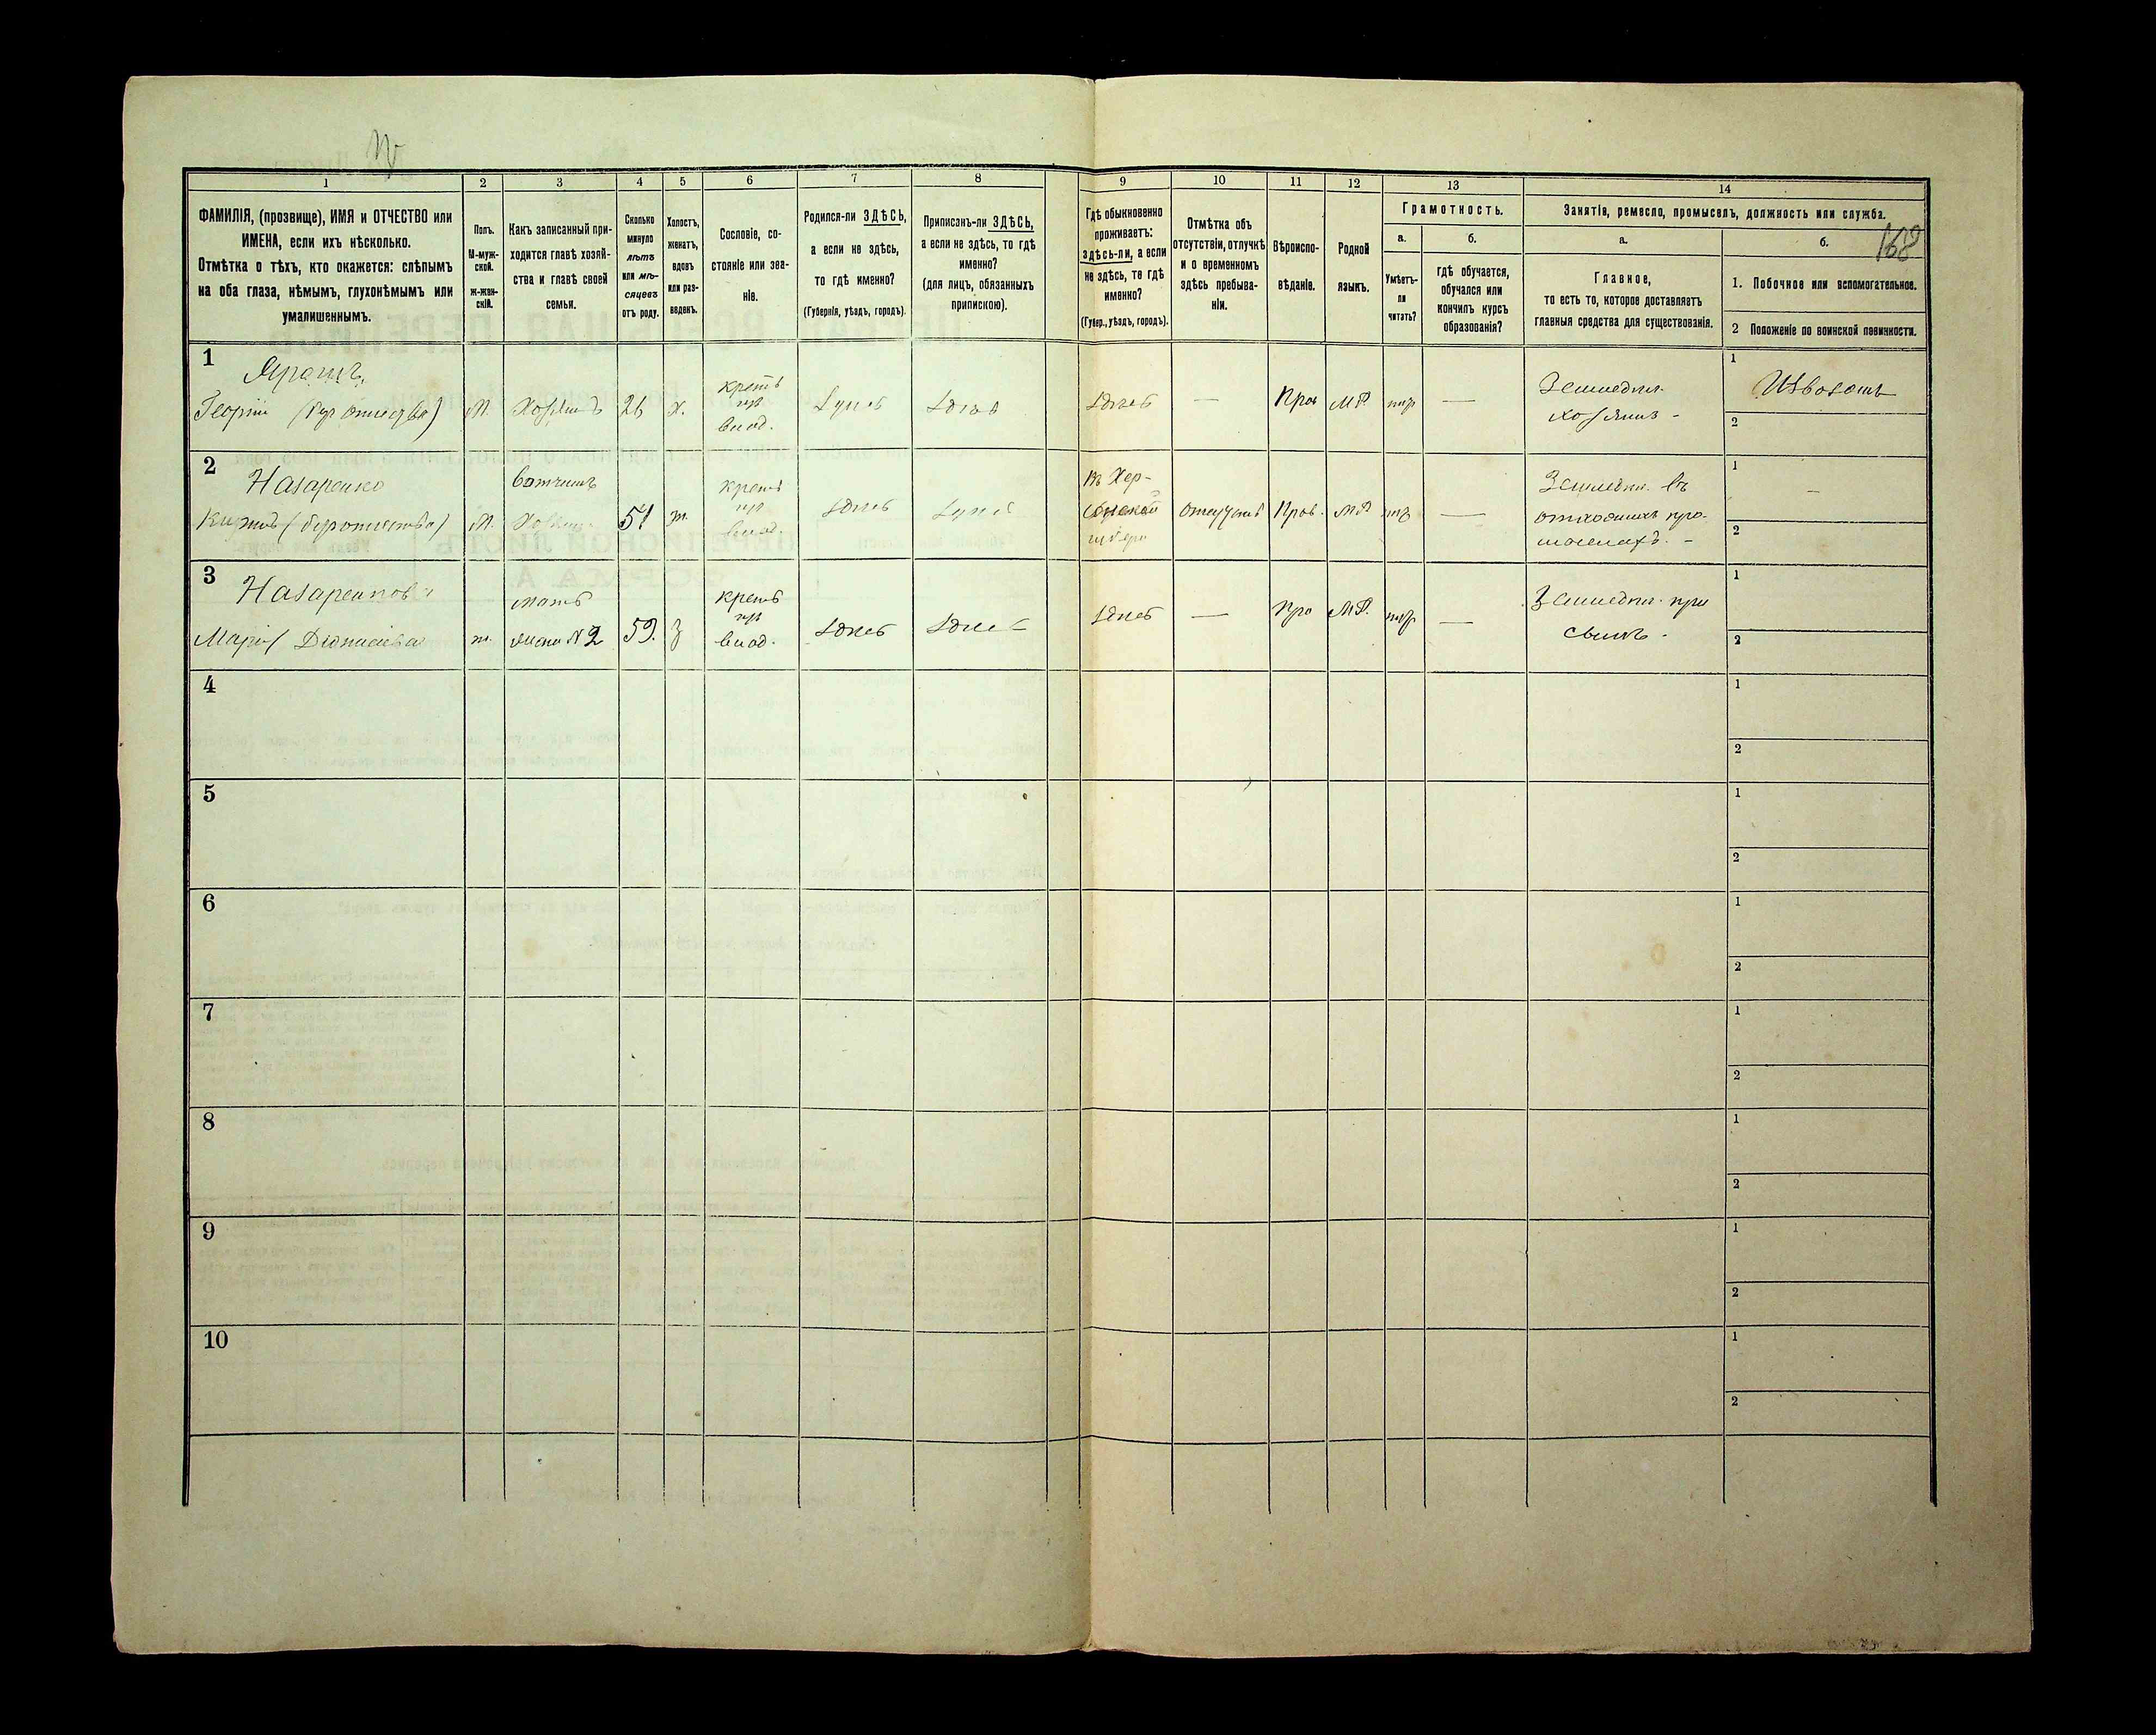 1
2
3
4
5
6
7
8
9
10
11
12
13
14
ФАМИЛІЯ, (прозвище), ИМЯ и ОТЧЕСТВО или
ИМЕНА, если ихъ нѣсколько.
Отмѣтка о тѣхъ, кто окажется: слѣпымъ
на оба глаза, нѣмымъ, глухонѣмымъ или
умалишеннымъ.
Полъ.
М-муж-
ской.
Ж-жен-
скій.
Какъ записанный при-
ходится главѣ хозяй-
ства и главѣ своей
семьи.
Сколько
минуло
лѣтъ
или мѣ-
сяцевъ
отъ роду.
Холостъ,
женатъ,
вдовъ
или раз-
веденъ.
Сословіе, со-
стояніе или зва-
ніе.
Родился-ли ЗДѢСЬ,
а если не здѣсь,
то гдѣ именно?
(Губернія, уѣздъ, городъ).
Приписанъ-ли ЗДѢСЬ,
а если не здѣсь, то гдѣ
именно?
(для лицъ, обязанныхъ
припискою).
Гдѣ обыкновенно
проживаетъ:
здѣсь-ли, а если
не здѣсь, то гдѣ
именно?
(Губер., уѣздъ, городъ).
Отмѣтка объ
отсутствіи, отлучкѣ
и о временномъ
здѣсь пребыва-
ніи.
Вѣроиспо-
вѣданіе.
Родной
языкъ.
Грамотность.
а.
Умѣетъ-
ли
читать?
б.
гдѣ обучается,
обучался или
кончилъ курсъ
образованія?
Занятія, ремесло, промыселъ, должность или служба.
а.
Главное,
то есть то, которое доставляетъ
главныя средства для существованія.
б.
168
1. Побочное или вспомогательное.
2 Положеніе по воинской повинности.
1
Георгій
М.
Хозяинъ
26
х.
крест
влад.
Здѣсь
Здѣсь
Здѣсь
—
Прав
М.Р.
—
Земледѣл.
хозяинъ -
1
Извозомъ
2
2
Назаренко
М.
51
ж.
крест
влад.
Здѣсь
Здѣсь
Въ Хер-
сонской
губерн
Прав.
М.Р.
—
Земледѣл. въ
отхожихъ про-
мыслахъ. -
1
—
2
3
Назаренкова
Марія Діонисіева
ж.
мать
№ 2
59.
крест
влад.
Здѣсь
Здѣсь
Здѣсь
—
Пра
М.Р.
—
Земледѣл. при
сынѣ -
1
2
4
1
2
5
1
2
6
1
2
7
1
2
8
1
2
9
1
2
10
1
2